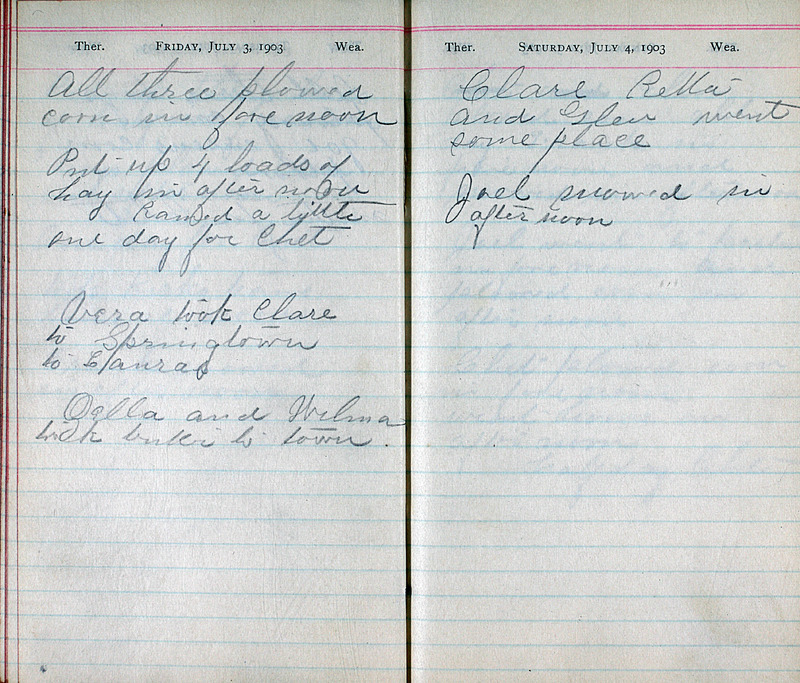 Ther. FRIDAY, JULY 3, 1903 Wea.
All three plowed
corn in fore noon
Put up 4 loads of
hay in after noon
Rained a little
one day for Chet
Vera took Clare
to Springtown
to
Della and Wilma
took butter to town.
Ther. SATURDAY, JULY 4, 1903 Wea.
Clare Retta
and Glen went
some place
Joel mowed in
after noon